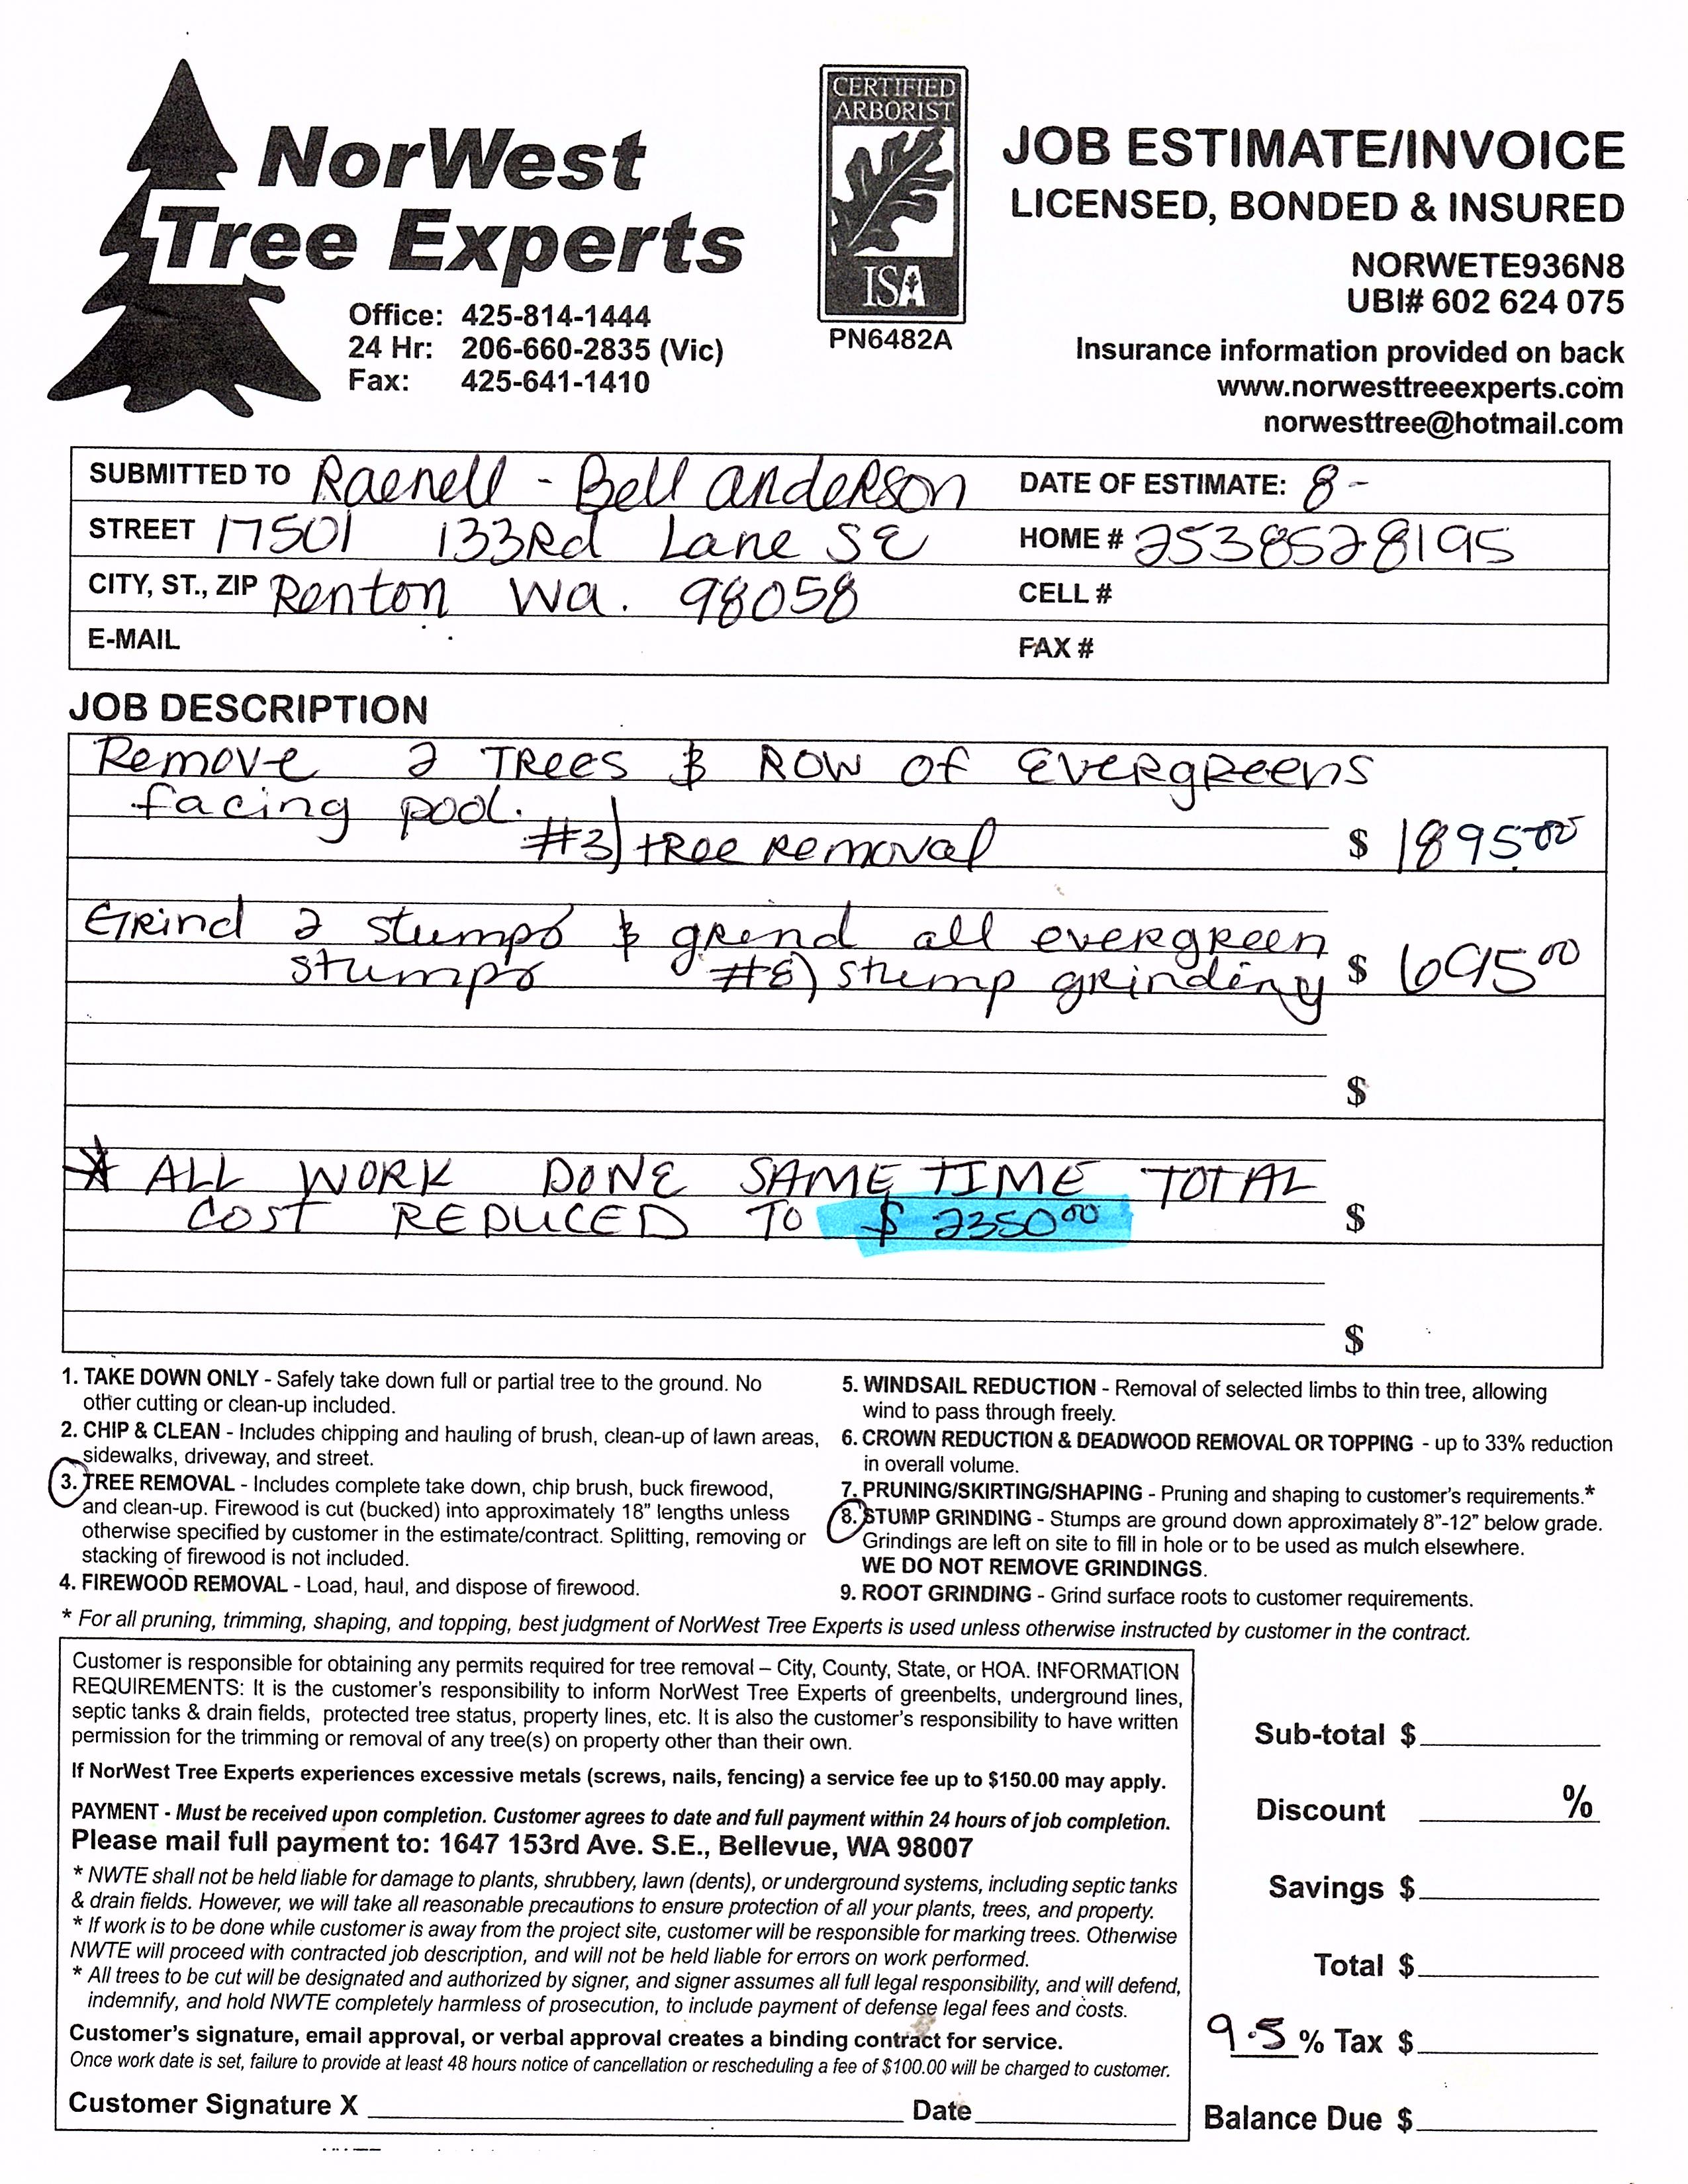 NorWest
Tree Experts
Office: 425-814-1444
24 Hr: 206-660-2835 (Vic)
Fax: 425-641-1410
CERTIFIED
ARBORIST
ISA
PN6482A
JOB ESTIMATE/INVOICE
LICENSED, BONDED & INSURED
NORWETE936N8
UBI# 602 624 075
Insurance information provided on back
www.norwesttreeexperts.com
norwesttree@hotmail.com
SUBMITTED TO Raenell - Bell anderson DATE OF ESTIMATE: 8-
STREET 17501 133Rd Lane SE HOME # 2538528195
CITY, ST., ZIP Renton Wa. 98058 CELL #
E-MAIL FAX #
JOB DESCRIPTION
Remove 2 TRees & ROW of EveRgReens
facing pool.
#3) tRee Removal $ 1895.00
GRind 2 stumps & grind all eveRgReen
stumps #8) stump grinding $ 695 00
$
* ALL WORK DONE SAME TIME TOTAL
COST REDUCED TO $ 2350 00 $
$
1. TAKE DOWN ONLY - Safely take down full or partial tree to the ground. No
other cutting or clean-up included.
2. CHIP & CLEAN - Includes chipping and hauling of brush, clean-up of lawn areas,
sidewalks, driveway, and street.
3. TREE REMOVAL - Includes complete take down, chip brush, buck firewood,
and clean-up. Firewood is cut (bucked) into approximately 18" lengths unless
otherwise specified by customer in the estimate/contract. Splitting, removing or
stacking of firewood is not included.
4. FIREWOOD REMOVAL - Load, haul, and dispose of firewood.
5. WINDSAIL REDUCTION - Removal of selected limbs to thin tree, allowing
wind to pass through freely.
6. CROWN REDUCTION & DEADWOOD REMOVAL OR TOPPING - up to 33% reduction
in overall volume.
7. PRUNING/SKIRTING/SHAPING - Pruning and shaping to customer's requirements.*
8. STUMP GRINDING - Stumps are ground down approximately 8"-12" below grade.
Grindings are left on site to fill in hole or to be used as mulch elsewhere.
WE DO NOT REMOVE GRINDINGS.
9. ROOT GRINDING - Grind surface roots to customer requirements.
* For all pruning, trimming, shaping, and topping, best judgment of NorWest Tree Experts is used unless otherwise instructed by customer in the contract.
Customer is responsible for obtaining any permits required for tree removal – City, County, State, or HOA. INFORMATION
REQUIREMENTS: It is the customer's responsibility to inform NorWest Tree Experts of greenbelts, underground lines,
septic tanks & drain fields, protected tree status, property lines, etc. It is also the customer's responsibility to have written
permission for the trimming or removal of any tree(s) on property other than their own.
If NorWest Tree Experts experiences excessive metals (screws, nails, fencing) a service fee up to $150.00 may apply.
PAYMENT - Must be received upon completion. Customer agrees to date and full payment within 24 hours of job completion.
Please mail full payment to: 1647 153rd Ave. S.E., Bellevue, WA 98007
* NWTE shall not be held liable for damage to plants, shrubbery, lawn (dents), or underground systems, including septic tanks
& drain fields. However, we will take all reasonable precautions to ensure protection of all your plants, trees, and property.
* If work is to be done while customer is away from the project site, customer will be responsible for marking trees. Otherwise
NWTE will proceed with contracted job description, and will not be held liable for errors on work performed.
* All trees to be cut will be designated and authorized by signer, and signer assumes all full legal responsibility, and will defend,
indemnify, and hold NWTE completely harmless of prosecution, to include payment of defense legal fees and costs.
Customer's signature, email approval, or verbal approval creates a binding contract for service.
Once work date is set, failure to provide at least 48 hours notice of cancellation or rescheduling a fee of $100.00 will be charged to customer.
Customer Signature X Date
Sub-total $
Discount %
Savings $
Total $
9.5 % Tax $
Balance Due $